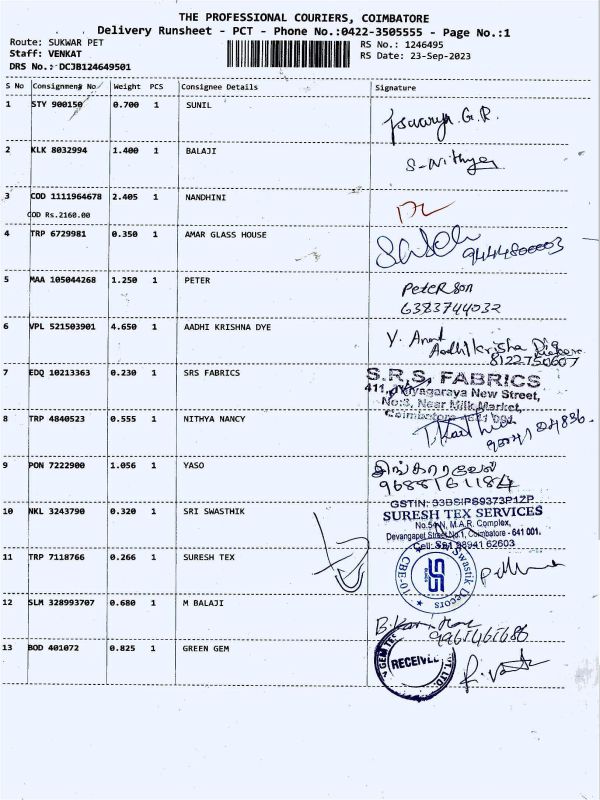 THE PROFESSIONAL COURIERS, COIMBATORE
Delivery Runsheet - PCT - Phone No.:0422-3505555 - Page No.:1
Route: SUKWAR PET
RS No.: 1246495
Staff: VENKAT
RS Date: 23-Sep-2023
DRS No.: DCJB124649501
S No Consignment No Weight PCS Consignee Details Signature
1 STY 900150 0.700 1 SUNIL G.R.
2 KLK 8032994 1.400 1 BALAJI S-Nithya
3 COD 1111964678 2.405 1 NANDHINI
COD Rs.2160.00
4 TRP 6729981 0.350 1 AMAR GLASS HOUSE
9444800003
5 MAA 105044268 1.250 1 PETER PeteRson
6383744032
6 VPL 521503901 4.650 1 AADHI KRISHNA DYE Y. Anand
Aadhi Krisha
8122750607
7 EDQ 10213363 0.230 1 SRS FABRICS S.R.S. FABRICS
411, Thiyagaraya New Street,
No:3, Near Milk Market,
Coimbatore - 641 001.
8 TRP 4840523 0.555 1 NITHYA NANCY
9 PON 7222900 1.056 1 YASO
9688161184
10 NKL 3243790 0.320 1 SRI SWASTHIK
GSTIN: 33BSIPS9373P1ZP
SURESH TEX SERVICES
No.54 N, M.A.R. Complex,
Devangapet Street No.1, Coimbatore - 641 001.
Cell: 98941 62603
11 TRP 7118766 0.266 1 SURESH TEX
Sri Swastik Decors
CBE-01
12 SLM 328993707 0.680 1 M BALAJI
9965466686
13 BOD 401072 0.825 1 GREEN GEM
RECEIVED